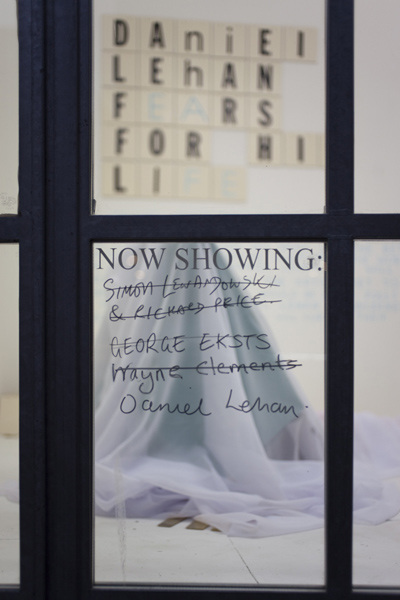 DANiEl
LEhAN
FEARS
FOR HI
LIFE
NOW SHOWING:
SIMON LEWANDOWSKI
& RICHARD PRICE.
GEORGE EKSTS
Wayne Clements
Daniel Lehan.